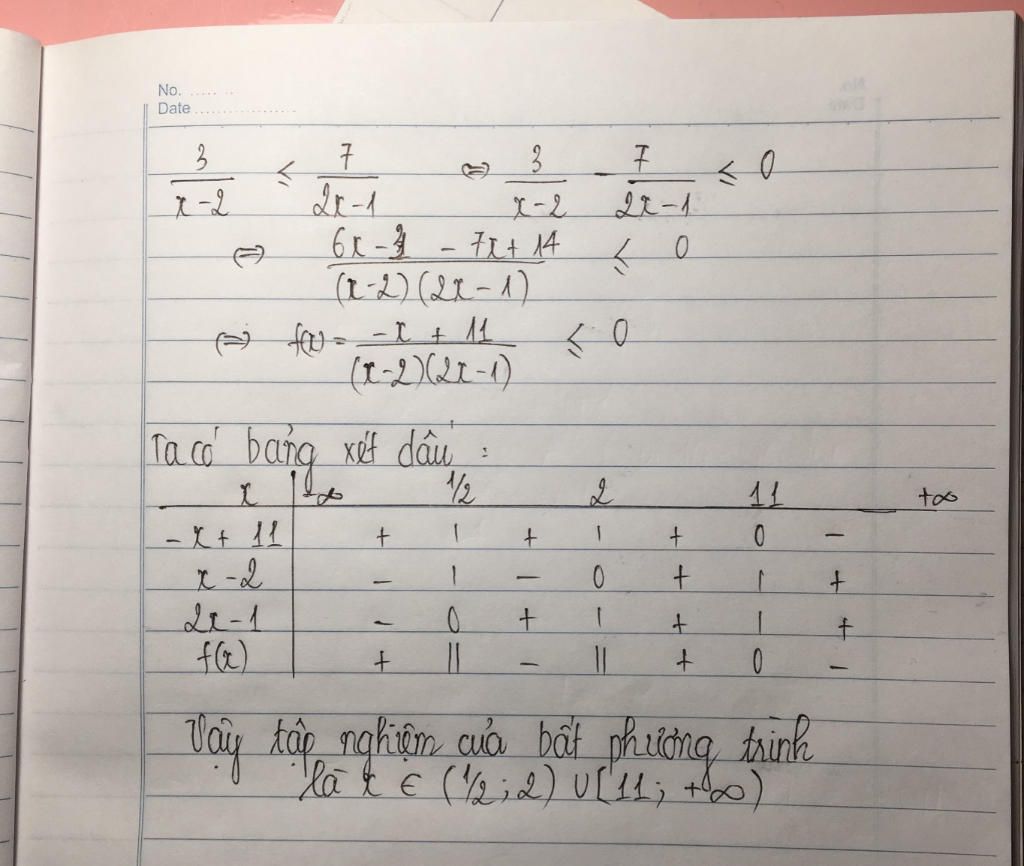 No. ........
Date ..................
3/(x-2) ≤ 7/(2x-1) ⇔ 3/(x-2) - 7/(2x-1) ≤ 0
⇔ (6x-3 - 7x+14)/((x-2)(2x-1)) ≤ 0
⇔ f(x) = (-x + 11)/((x-2)(2x-1)) ≤ 0
Ta có bảng xét dấu :
x | -∞ 1/2 2 11 +∞
-x + 11 | + | + | + 0 -
x-2 | - | - 0 + | +
2x-1 | - 0 + | + | +
f(x) | + || - || + 0 -
Vậy tập nghiệm của bất phương trình
là x ∈ (1/2; 2) ∪ [11; +∞)